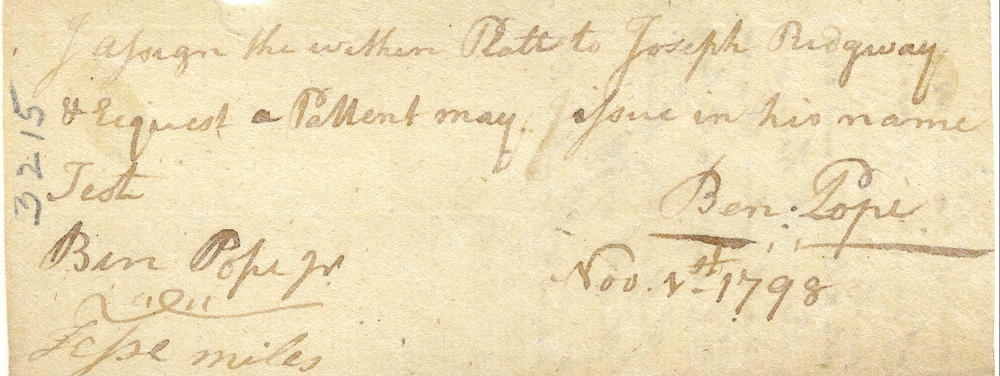 I assign the within Platt to Joseph Ridgway
& Request a Pattent may issue in his name
Test
Ben. Pope
Ben Pope Jr
Nov. 1st 1798
Jesse miles
3215